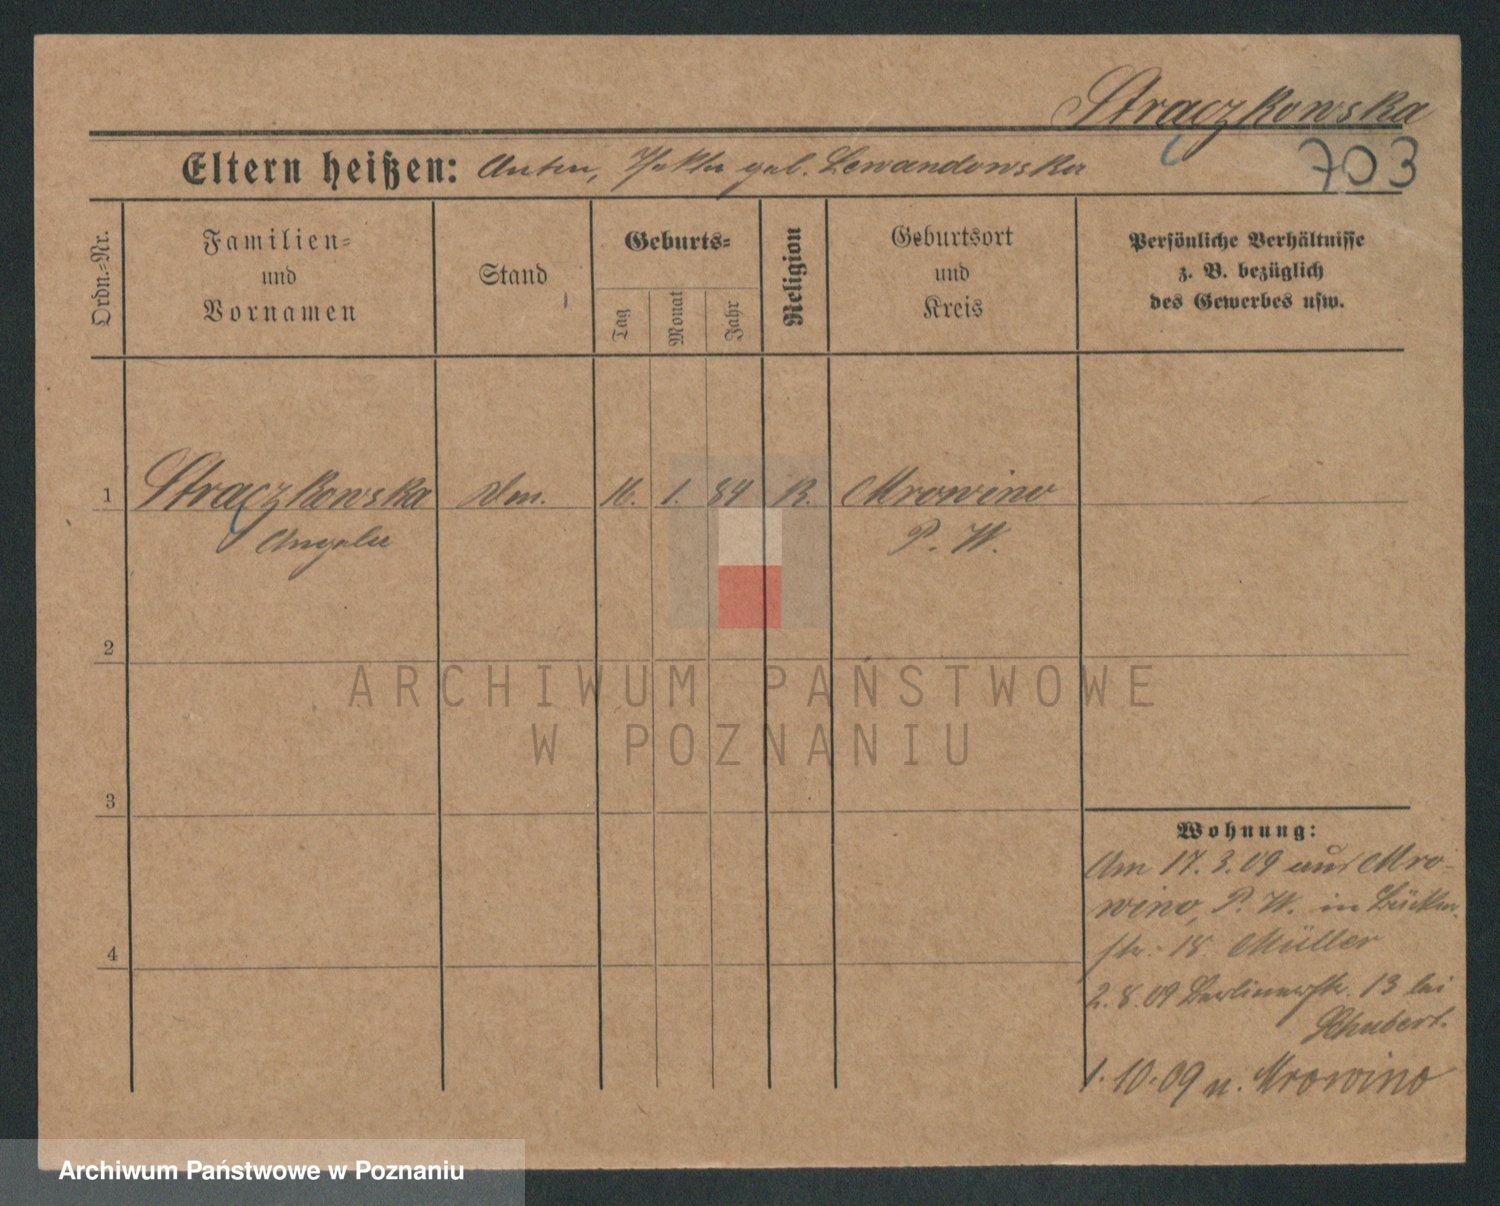 Straczkowska
703
Eltern heißen: Anton, geb. Lewandowska
Ordn.-Nr.
Familien-
und
Vornamen
Stand
Geburts-
Tag
Monat
Jahr
Religion
Geburtsort
und
Kreis
Persönliche Verhältnisse
z. B. bezüglich
des Gewerbes usw.
1 Strączkowska 16. 1. 84 K. Mrowino
Angela P. W.
2
ARCHIWUM PAŃSTWOWE
W POZNANIU
3
Wohnung:
Am 17.3.09 aus Mro-
wino, P. W. in
str. 18. Müller
4
2.8.09 Berlinerstr. 13 bei
Schubert.
1.10.09 n. Mrowino
Archiwum Państwowe w Poznaniu